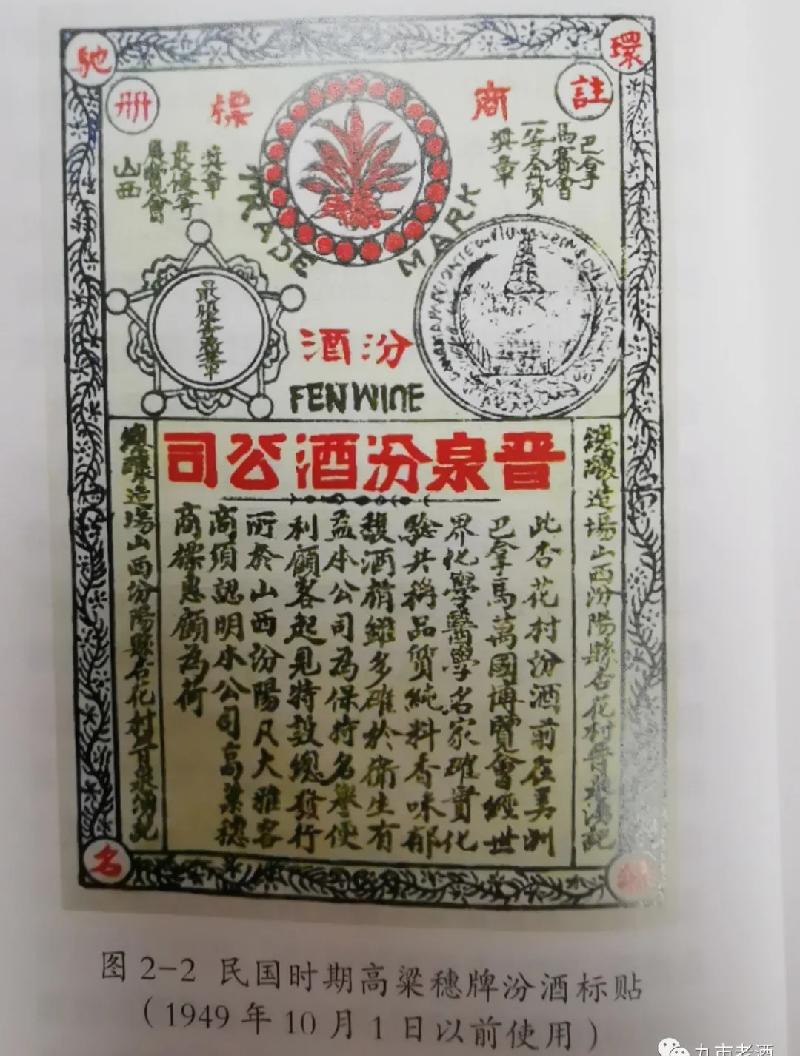 環
馳
註
商標
冊
巴拿
馬賽會
一等金質
獎章
山西
展覽會
最優等
獎章
TRADE MARK
汾酒
FENWINE
晋泉汾酒公司
釀造場山西汾陽縣杏花村晉泉湧記
此杏花村汾酒前在美洲
巴拿馬萬國博覽會經世
界化學醫學名家確實化
驗共稱品質純料香味郁
馥酒精雖多確於衛生有
益本公司為保持名譽便
利顧客起見特設總發行
所於山西汾陽凡大雅客
商須認明本公司高粱穗
商標惠顧為荷
總釀造場山西汾陽縣杏花村晉泉湧記
名
图 2-2 民国时期高粱穗牌汾酒标贴
（1949 年 10 月 1 日以前使用）
九市老酒